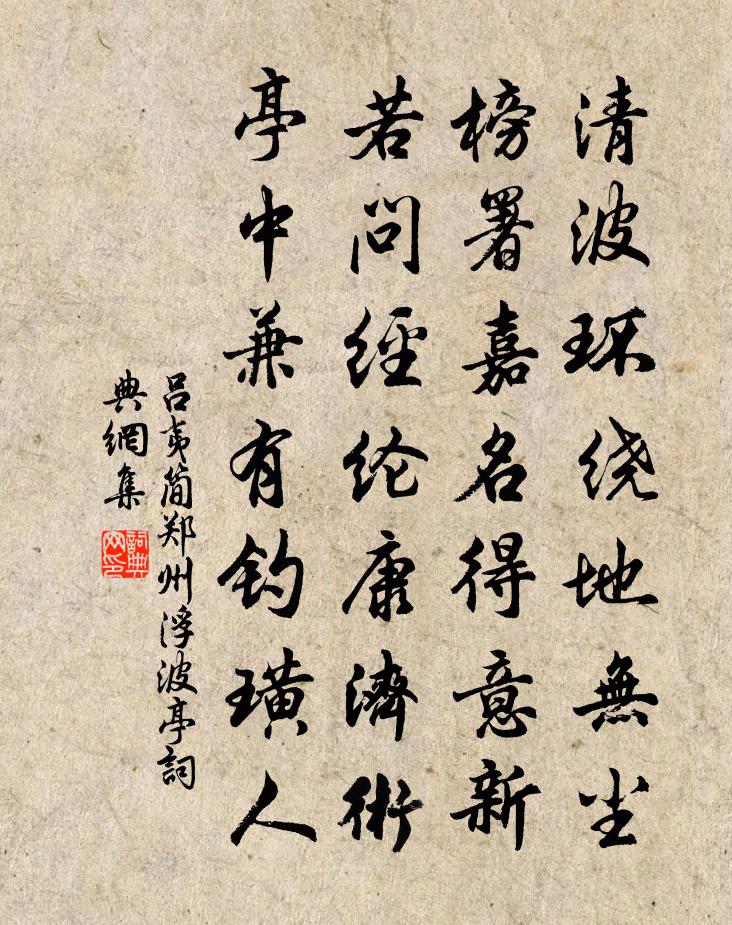 清波环绕地無尘
榜署嘉名得意新
若问經纶康濟術
亭中兼有钓璜人
吕夷简郑州浮波亭詞
典網集
詞典网印